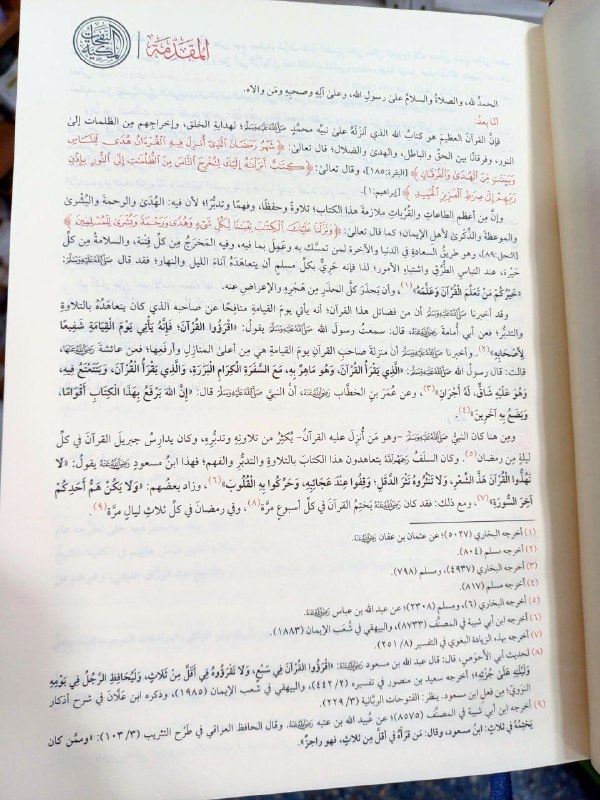 النفحات المكية
المقدمة
الحمدُ لله، والصلاةُ والسلامُ على رسولِ الله، وعلى آلِهِ وصحبِهِ ومَن والاه.
أمَّا بعدُ:
فإنَّ القرآنَ العظيمَ هو كتابُ الله الذي أنزلَهُ على نبيِّه محمَّدٍ ﷺ؛ لهدايةِ الخلق، وإخراجِهم مِن الظلمات إلى
النور، وفرقانًا بين الحقِّ والباطل، والهدى والضلال؛ قال تعالى: ﴿شَهْرُ رَمَضَانَ الَّذِي أُنزِلَ فِيهِ الْقُرْءَانُ هُدًى لِلنَّاسِ
وَبَيِّنَاتٍ مِنَ الْهُدَى وَالْفُرْقَانِ﴾ [البقرة:١٨٥]، وقال تعالى: ﴿كِتَابٌ أَنزَلْنَاهُ إِلَيْكَ لِتُخْرِجَ النَّاسَ مِنَ الظُّلُمَاتِ إِلَى النُّورِ بِإِذْنِ
رَبِّهِمْ إِلَى صِرَاطِ الْعَزِيزِ الْحَمِيدِ﴾ [إبراهيم:١].
وإنَّ مِن أعظمِ الطاعاتِ والقُرُباتِ ملازمةَ هذا الكتاب؛ تلاوةً وحفظًا، وفهمًا وتدبُّرًا؛ لأن فيه: الهُدَى والرحمةَ والبُشرى
والموعظةَ والذِّكرى لأهلِ الإيمان؛ كما قال تعالى: ﴿وَنَزَّلْنَا عَلَيْكَ الْكِتَابَ تِبْيَانًا لِكُلِّ شَيْءٍ وَهُدًى وَرَحْمَةً وَبُشْرَى لِلْمُسْلِمِينَ﴾
[النحل:٨٩]، وهو طريقُ السعادةِ في الدنيا والآخرة لمن تمسَّك به وعَمِلَ بما فيه، وفيه المَخرَجُ مِن كلِّ فِتنة، والسلامةُ مِن كلِّ
حَيْرة، عند التباسِ الطُّرُقِ واشتباهِ الأمور؛ لذا فإنه حَرِيٌّ بكلِّ مسلمٍ أن يتعاهَدَهُ آناءَ الليلِ والنهار؛ فقد قال ﷺ:
«خَيْرُكُمْ مَنْ تَعَلَّمَ القُرْآنَ وَعَلَّمَهُ»(١)، وأن يَحذَرَ كلَّ الحذرِ مِن هَجْرِهِ والإعراضِ عنه.
وقد أخبرنا ﷺ أن مِن فضائلِ هذا القرآن؛ أنه يأتي يومَ القيامةِ منافِحًا عن صاحبه الذي كان يتعاهَدُهُ بالتلاوةِ
والتدبُّر؛ فعن أبي أُمامةَ رضي الله عنه، قال: سمعتُ رسولَ الله ﷺ يقول: «اقْرَؤُوا القُرْآنَ؛ فَإِنَّهُ يَأْتِي يَوْمَ القِيَامَةِ شَفِيعًا
لِأَصْحَابِهِ»(٢). وأخبرنا ﷺ أن منزلةَ صاحبِ القرآنِ يومَ القيامةِ هي مِن أعلى المنازلِ وأرفعِها؛ فعن عائشةَ رضي الله عنها،
قالت: قال رسولُ الله ﷺ: «الَّذِي يَقْرَأُ القُرْآنَ، وَهُوَ مَاهِرٌ بِهِ، مَعَ السَّفَرَةِ الْكِرَامِ البَرَرَةِ، وَالَّذِي يَقْرَأُ القُرْآنَ، وَيَتَتَعْتَعُ فِيهِ،
وَهُوَ عَلَيْهِ شَاقٌّ، لَهُ أَجْرَانِ»(٣)، وعن عُمَرَ بنِ الخطَّابِ رضي الله عنه، أنَّ النبيَّ ﷺ قال: «إِنَّ اللهَ يَرْفَعُ بِهَذَا الكِتَابِ أَقْوَامًا،
وَيَضَعُ بِهِ آخَرِينَ»(٤).
ومِن هنا كان النبيُّ ﷺ -وهو مَن أُنزِلَ عليه القرآن- يُكثِرُ مِن تلاوتِهِ وتدبُّرِه، وكان يدارِسُ جبريلَ القرآنَ في كلِّ
ليلةٍ مِن رمضان(٥). وكان السلفُ رحمهم الله يتعاهدون هذا الكتابَ بالتلاوةِ والتدبُّرِ والفهم؛ فهذا ابنُ مسعودٍ رضي الله عنه يقول: «لَا
تَهُذُّوا القُرْآنَ هَذَّ الشِّعْرِ، وَلَا تَنْثُرُوهُ نَثْرَ الدَّقَلِ؛ وَقِفُوا عِنْدَ عَجَائِبِهِ، وَحَرِّكُوا بِهِ القُلُوبَ»(٦)، وزاد بعضُهم: «وَلَا يَكُنْ هَمُّ أَحَدِكُمْ
آخِرَ السُّورَةِ»(٧)، ومع ذلك: فقد كان رضي الله عنه يَختِمُ القرآنَ في كلِّ أسبوعٍ مرَّة(٨)، وفي رمضانَ في كلِّ ثلاثِ ليالٍ مرَّة(٩).
(١) أخرجه البخاري (٥٠٢٧)؛ عن عثمان بن عفان رضي الله عنه.
(٢) أخرجه مسلم (٨٠٤).
(٣) أخرجه البخاري (٤٩٣٧)، ومسلم (٧٩٨).
(٤) أخرجه مسلم (٨١٧).
(٥) أخرجه البخاري (٦)، ومسلم (٢٣٠٨)؛ عن عبد الله بن عباس رضي الله عنه.
(٦) أخرجه ابن أبي شيبة في المصنَّف (٨٧٣٣)، والبيهقي في شُعَب الإيمان (١٨٨٣).
(٧) أخرجه بهذه الزيادة البغوي في التفسير (٢٥١/٨).
(٨) لحديث أبي الأحوَص، قال: قال عبد الله بن مسعود رضي الله عنه: «اقْرَؤُوا القُرْآنَ فِي سَبْعٍ، وَلَا تَقْرَؤُوهُ فِي أَقَلَّ مِنْ ثَلَاثٍ، وَلْيُحَافِظِ الرَّجُلُ فِي يَوْمِهِ
وَلَيْلَتِهِ عَلَى جُزْئِهِ»؛ أخرجه سعيد بن منصور في تفسيره (٤٤٢/٢)، والبيهقي في شُعَب الإيمان (١٩٨٥)، وذكره ابن علَّان في شرح أذكار
النووي؛ مِن فعل ابن مسعود. ينظر: الفتوحات الربَّانية (٢٢٩/٣).
(٩) أخرجه ابن أبي شيبة في المصنَّف (٨٥٧٥)؛ عن عُبيد الله بن عتبه رضي الله عنه. وقال الحافظ العراقي في طَرْح التثريب (١٠٣/٣): «وممَّن كان
يَختِمُهُ في ثلاث: ابنُ مسعود، وقال: مَن قرَأَهُ في أقلَّ مِن ثلاثٍ، فهو راجِزٌ».